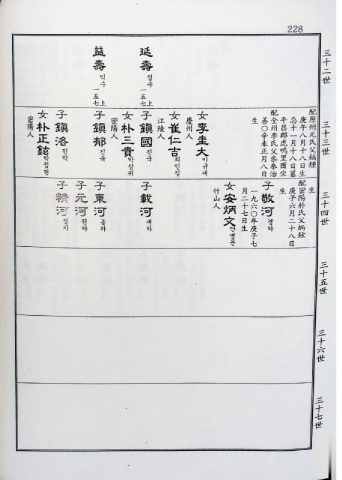 228
三十二世
延壽 연수 一五七上
益壽 익수 一五七上
三十三世
配原州元氏父炳鍾
庚午八月十八日生
忌十一月十八日墓
平昌郡虎鳴里酉坐
配全州李氏父泰治
善○辛未正月八日
生
女李圭大 이규대
慶州人
女崔仁吉 최인길
江陵人
子鎭國 진국
女朴三貴 박삼귀
密陽人
子鎭郁 진욱
子鎭洛 진락
女朴正鉉 박정현
密陽人
三十四世
生
配密陽朴氏父炳鍾
庚子六月二十八日
生
子敬河 경하
一九六〇年庚子七
月二十七日生
女安炳文 안병문
竹山人
子載河 재하
子東河 동하
子元河 원하
子精河 정하
三十五世
三十六世
三十七世